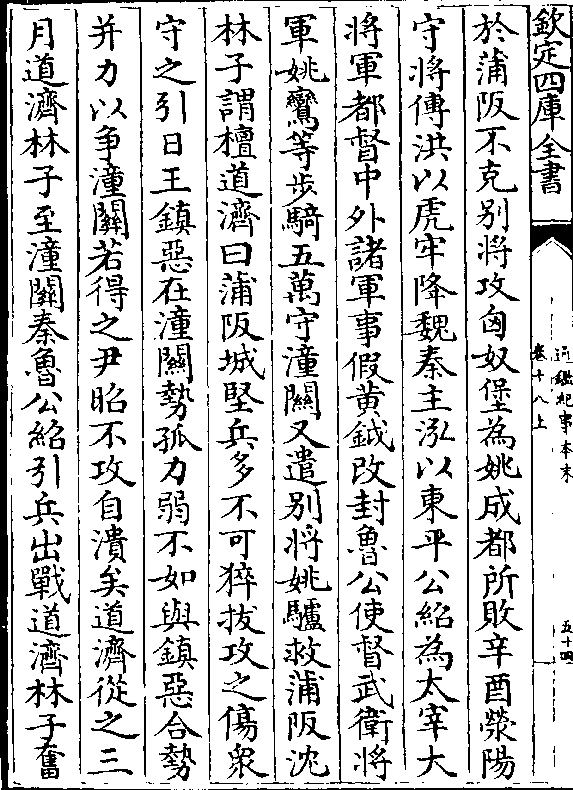 欽定四庫全書
通鑑紀事本末
卷十八上
五十四
於蒲阪不克别將攻匈奴堡為姚成都所敗辛酉滎陽
守將傅洪以虎牢降魏秦主泓以東平公紹為太宰大
將軍都督中外諸軍事假黃鉞改封魯公使督武衛將
軍姚鸞等步騎五萬守潼關又遣别將姚驢救蒲阪沈
林子謂檀道濟曰蒲阪城堅兵多不可猝拔攻之傷衆
守之引日王鎮惡在潼關勢孤力弱不如與鎮惡合勢
并力以争潼關若得之尹昭不攻自潰矣道濟從之三
月道濟林子至潼關秦魯公紹引兵出戰道濟林子奮